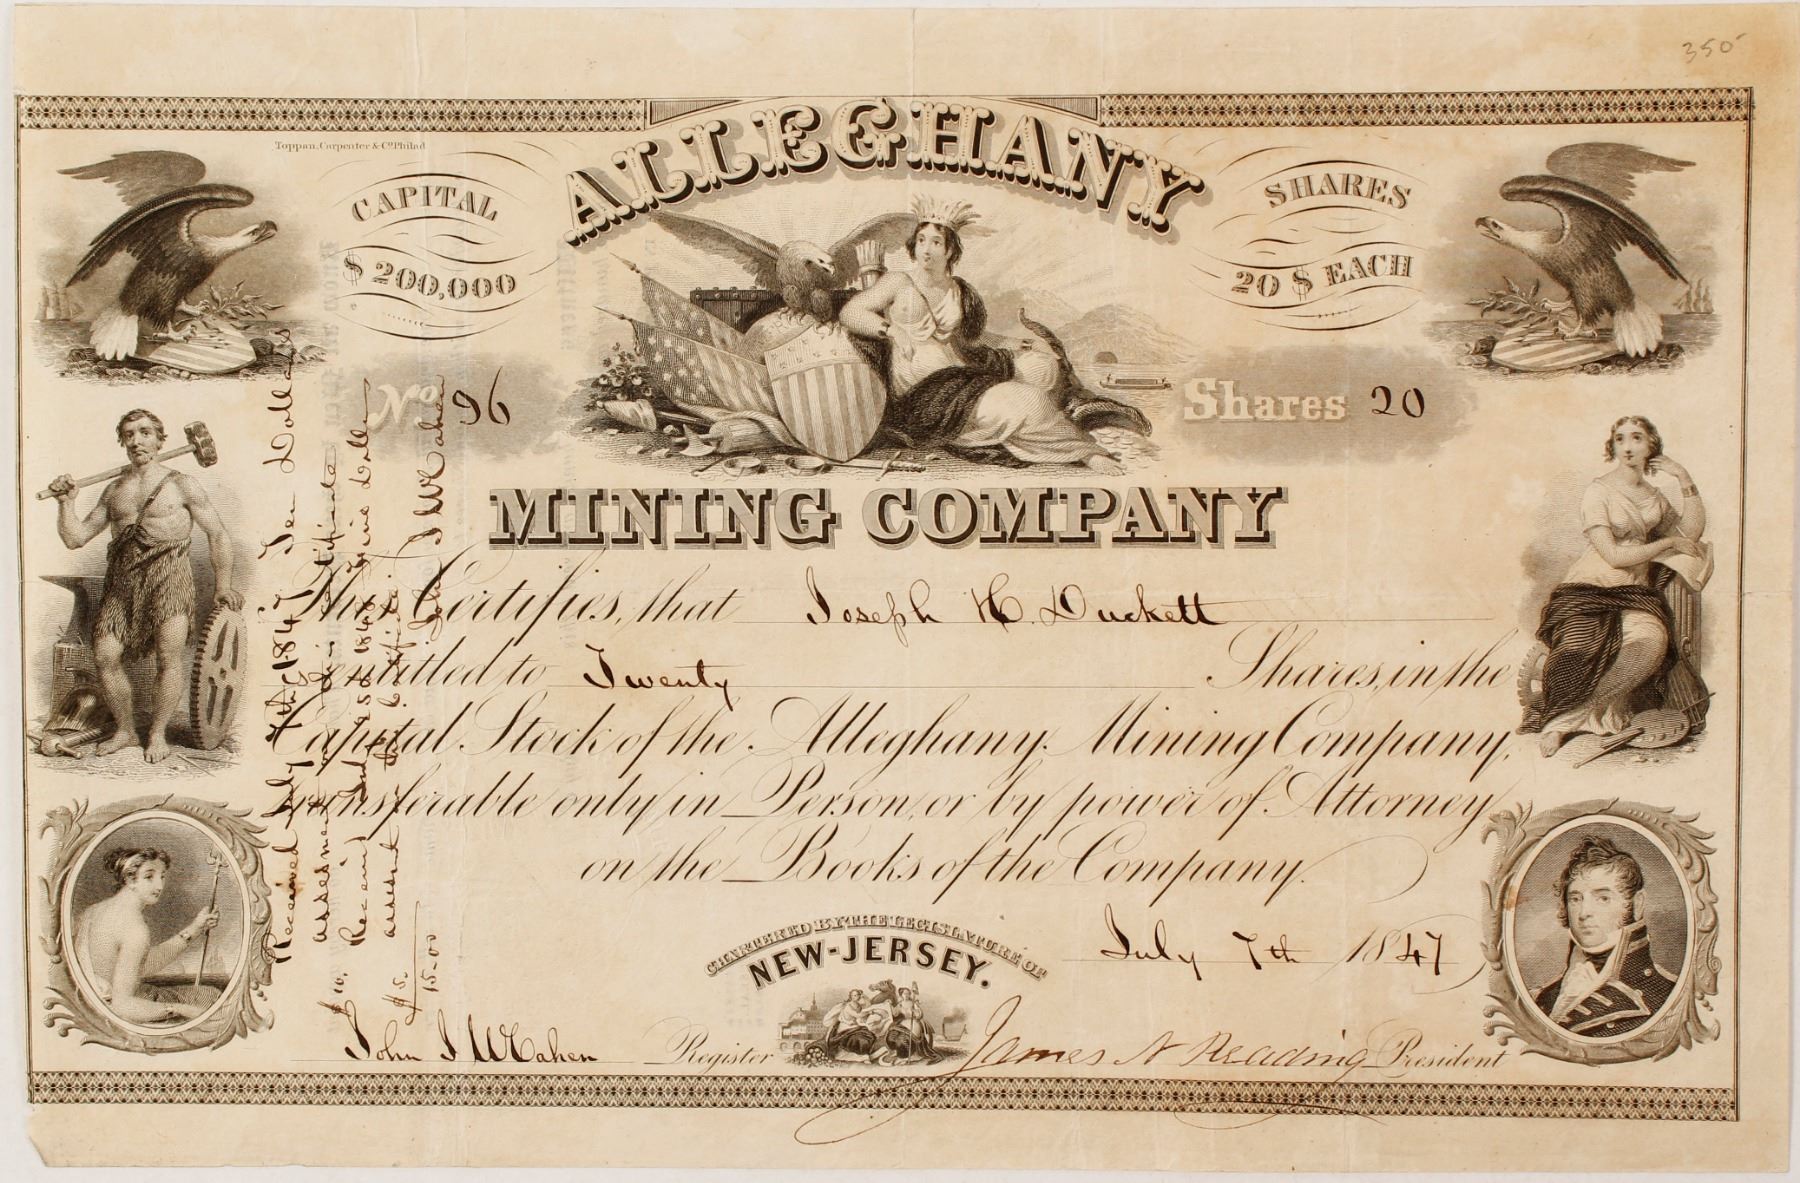 350
Toppan, Carpenter & Co. Philad
ALLEGHANY
CAPITAL
$ 200,000
SHARES
20 $ EACH
No. 96
Shares 20
MINING COMPANY
This Certifies, that Joseph H. Duckett
is entitled to Twenty Shares, in the
Capital Stock of the Alleghany Mining Company,
transferable only in Person, or by power of Attorney
on the Books of the Company.
CHARTERED BY THE LEGISLATURE OF
NEW-JERSEY.
July 7th 1847
John J McCahen Register
James N Reading President
Received July 7th 1847 Ten Dollars
assessment on this Certificate
$10.
Received 1848 Five Dollars
assessment Certificate
$5.
15.00
J McCahen